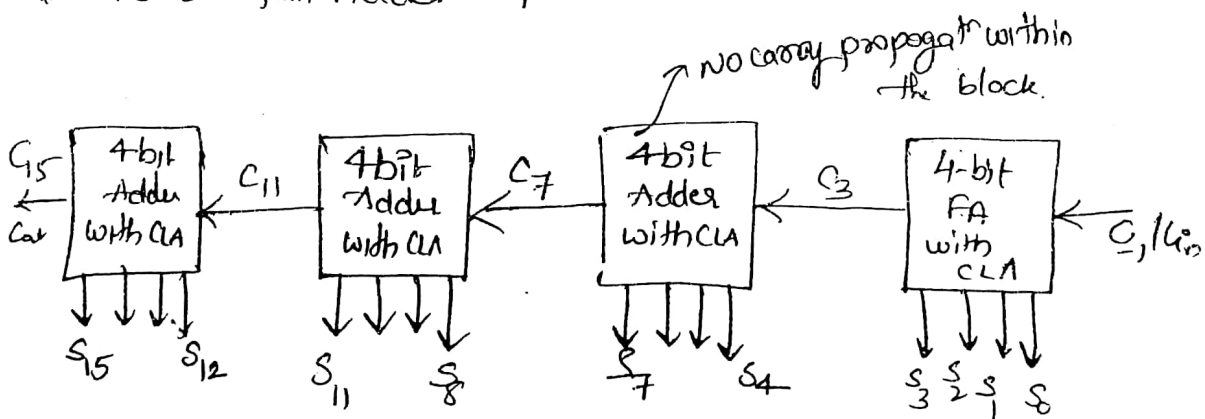 No carry propogatn within
the block.
4-bit
Adder
with CLA
4-bit
Adder
with CLA
4-bit
Adder
with CLA
4-bit
FA
with
CLA
C15
C11
C7
C3
S15
S12
S11
S8
S7
S4
S3
S2
S1
S0